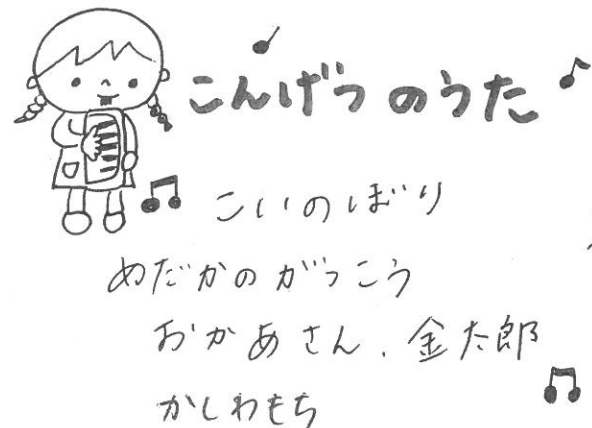 こんげつのうた
こいのぼり
めだかのがっこう
おかあさん、金太郎
かしわもち